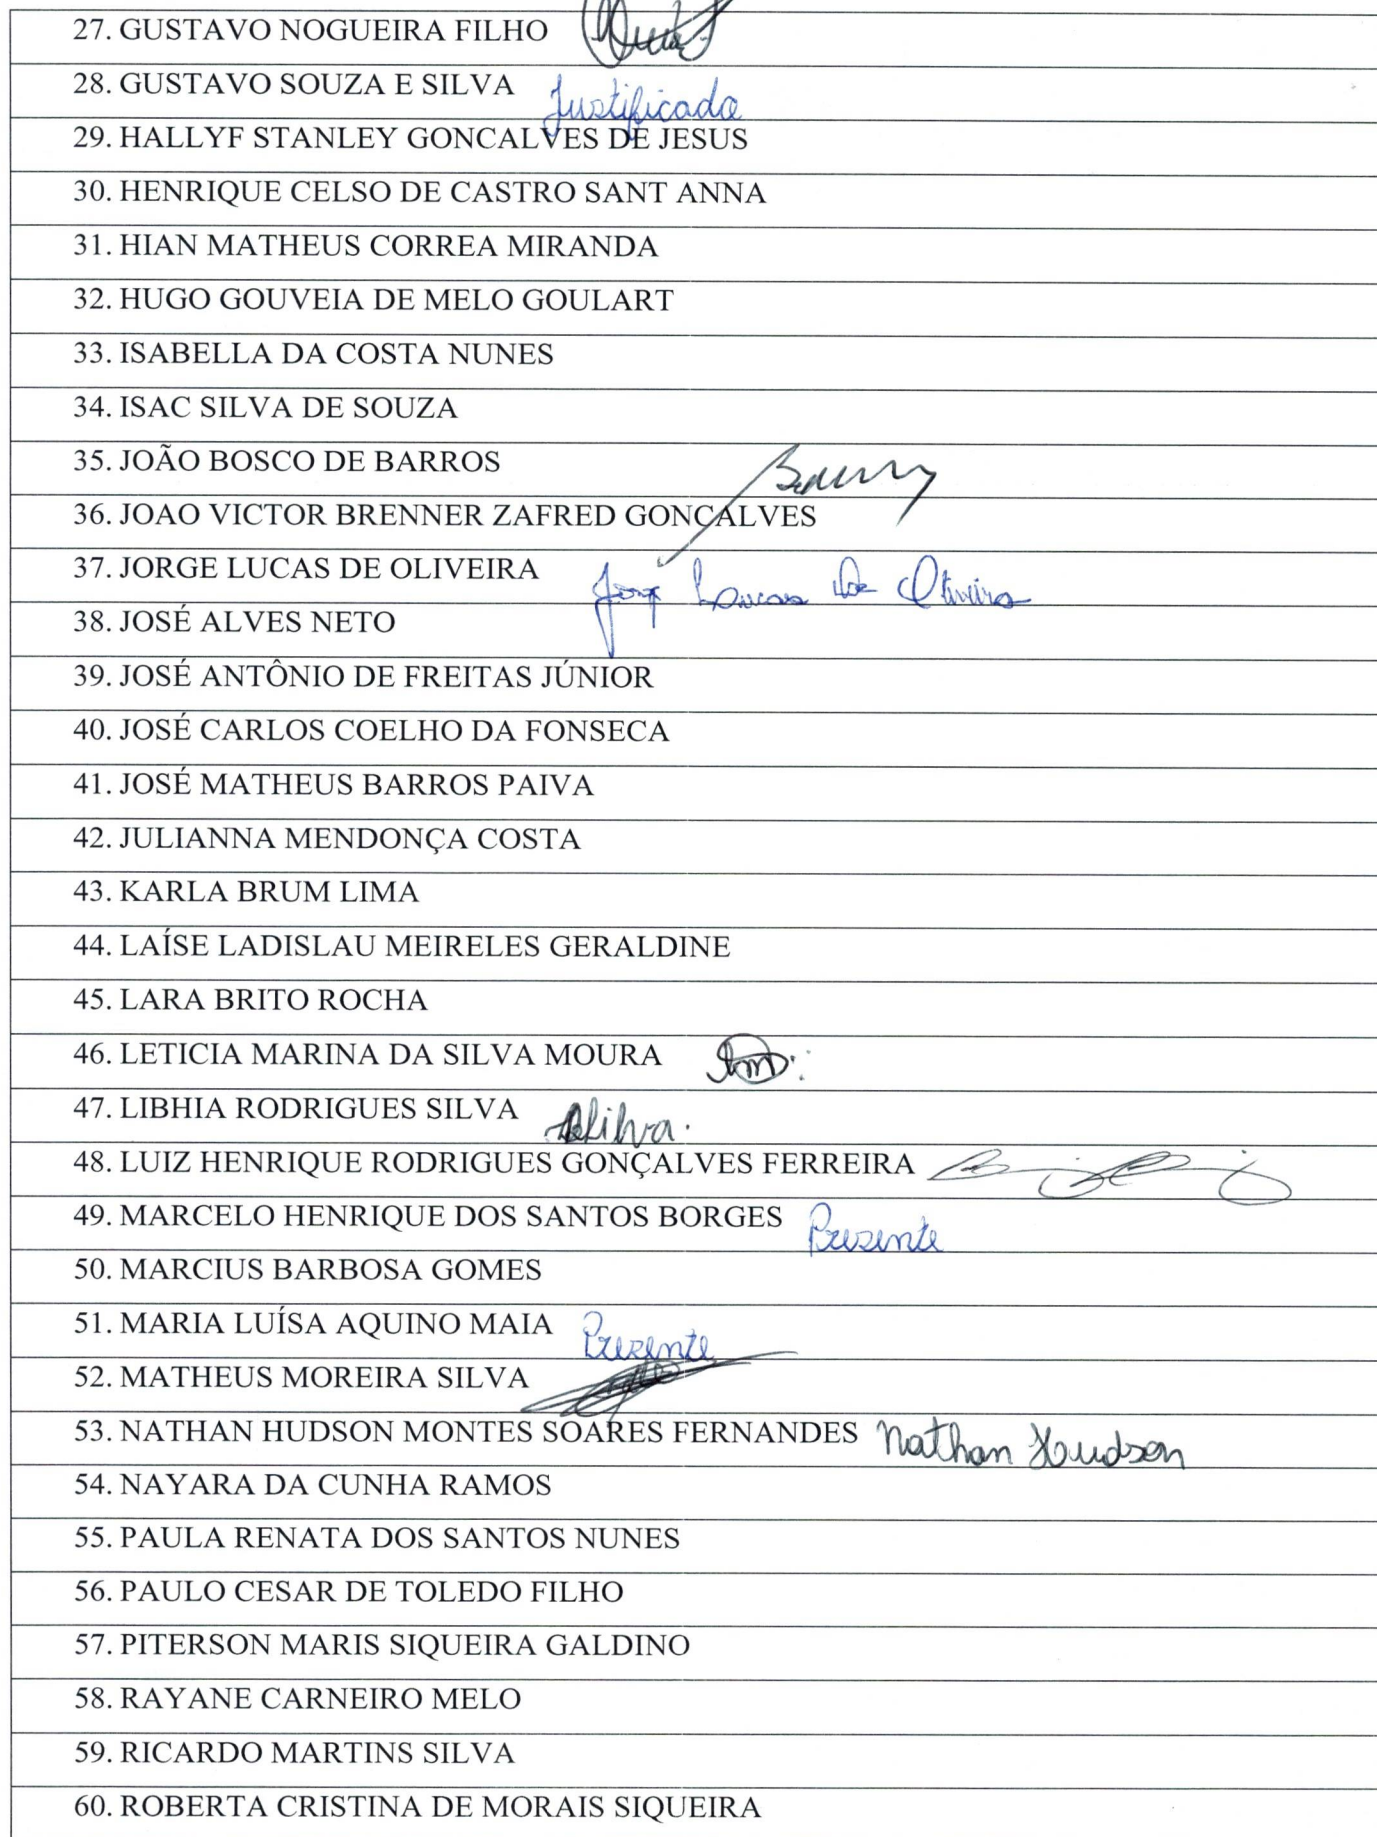 27. GUSTAVO NOGUEIRA FILHO
28. GUSTAVO SOUZA E SILVA Justificada
29. HALLYF STANLEY GONCALVES DE JESUS
30. HENRIQUE CELSO DE CASTRO SANT ANNA
31. HIAN MATHEUS CORREA MIRANDA
32. HUGO GOUVEIA DE MELO GOULART
33. ISABELLA DA COSTA NUNES
34. ISAC SILVA DE SOUZA
35. JOÃO BOSCO DE BARROS
36. JOAO VICTOR BRENNER ZAFRED GONCALVES
37. JORGE LUCAS DE OLIVEIRA Jorge Lucas de Oliveira
38. JOSÉ ALVES NETO
39. JOSÉ ANTÔNIO DE FREITAS JÚNIOR
40. JOSÉ CARLOS COELHO DA FONSECA
41. JOSÉ MATHEUS BARROS PAIVA
42. JULIANNA MENDONÇA COSTA
43. KARLA BRUM LIMA
44. LAÍSE LADISLAU MEIRELES GERALDINE
45. LARA BRITO ROCHA
46. LETICIA MARINA DA SILVA MOURA
47. LIBHIA RODRIGUES SILVA
48. LUIZ HENRIQUE RODRIGUES GONÇALVES FERREIRA
49. MARCELO HENRIQUE DOS SANTOS BORGES Presente
50. MARCIUS BARBOSA GOMES
51. MARIA LUÍSA AQUINO MAIA Presente
52. MATHEUS MOREIRA SILVA
53. NATHAN HUDSON MONTES SOARES FERNANDES Nathan Hudson
54. NAYARA DA CUNHA RAMOS
55. PAULA RENATA DOS SANTOS NUNES
56. PAULO CESAR DE TOLEDO FILHO
57. PITERSON MARIS SIQUEIRA GALDINO
58. RAYANE CARNEIRO MELO
59. RICARDO MARTINS SILVA
60. ROBERTA CRISTINA DE MORAIS SIQUEIRA